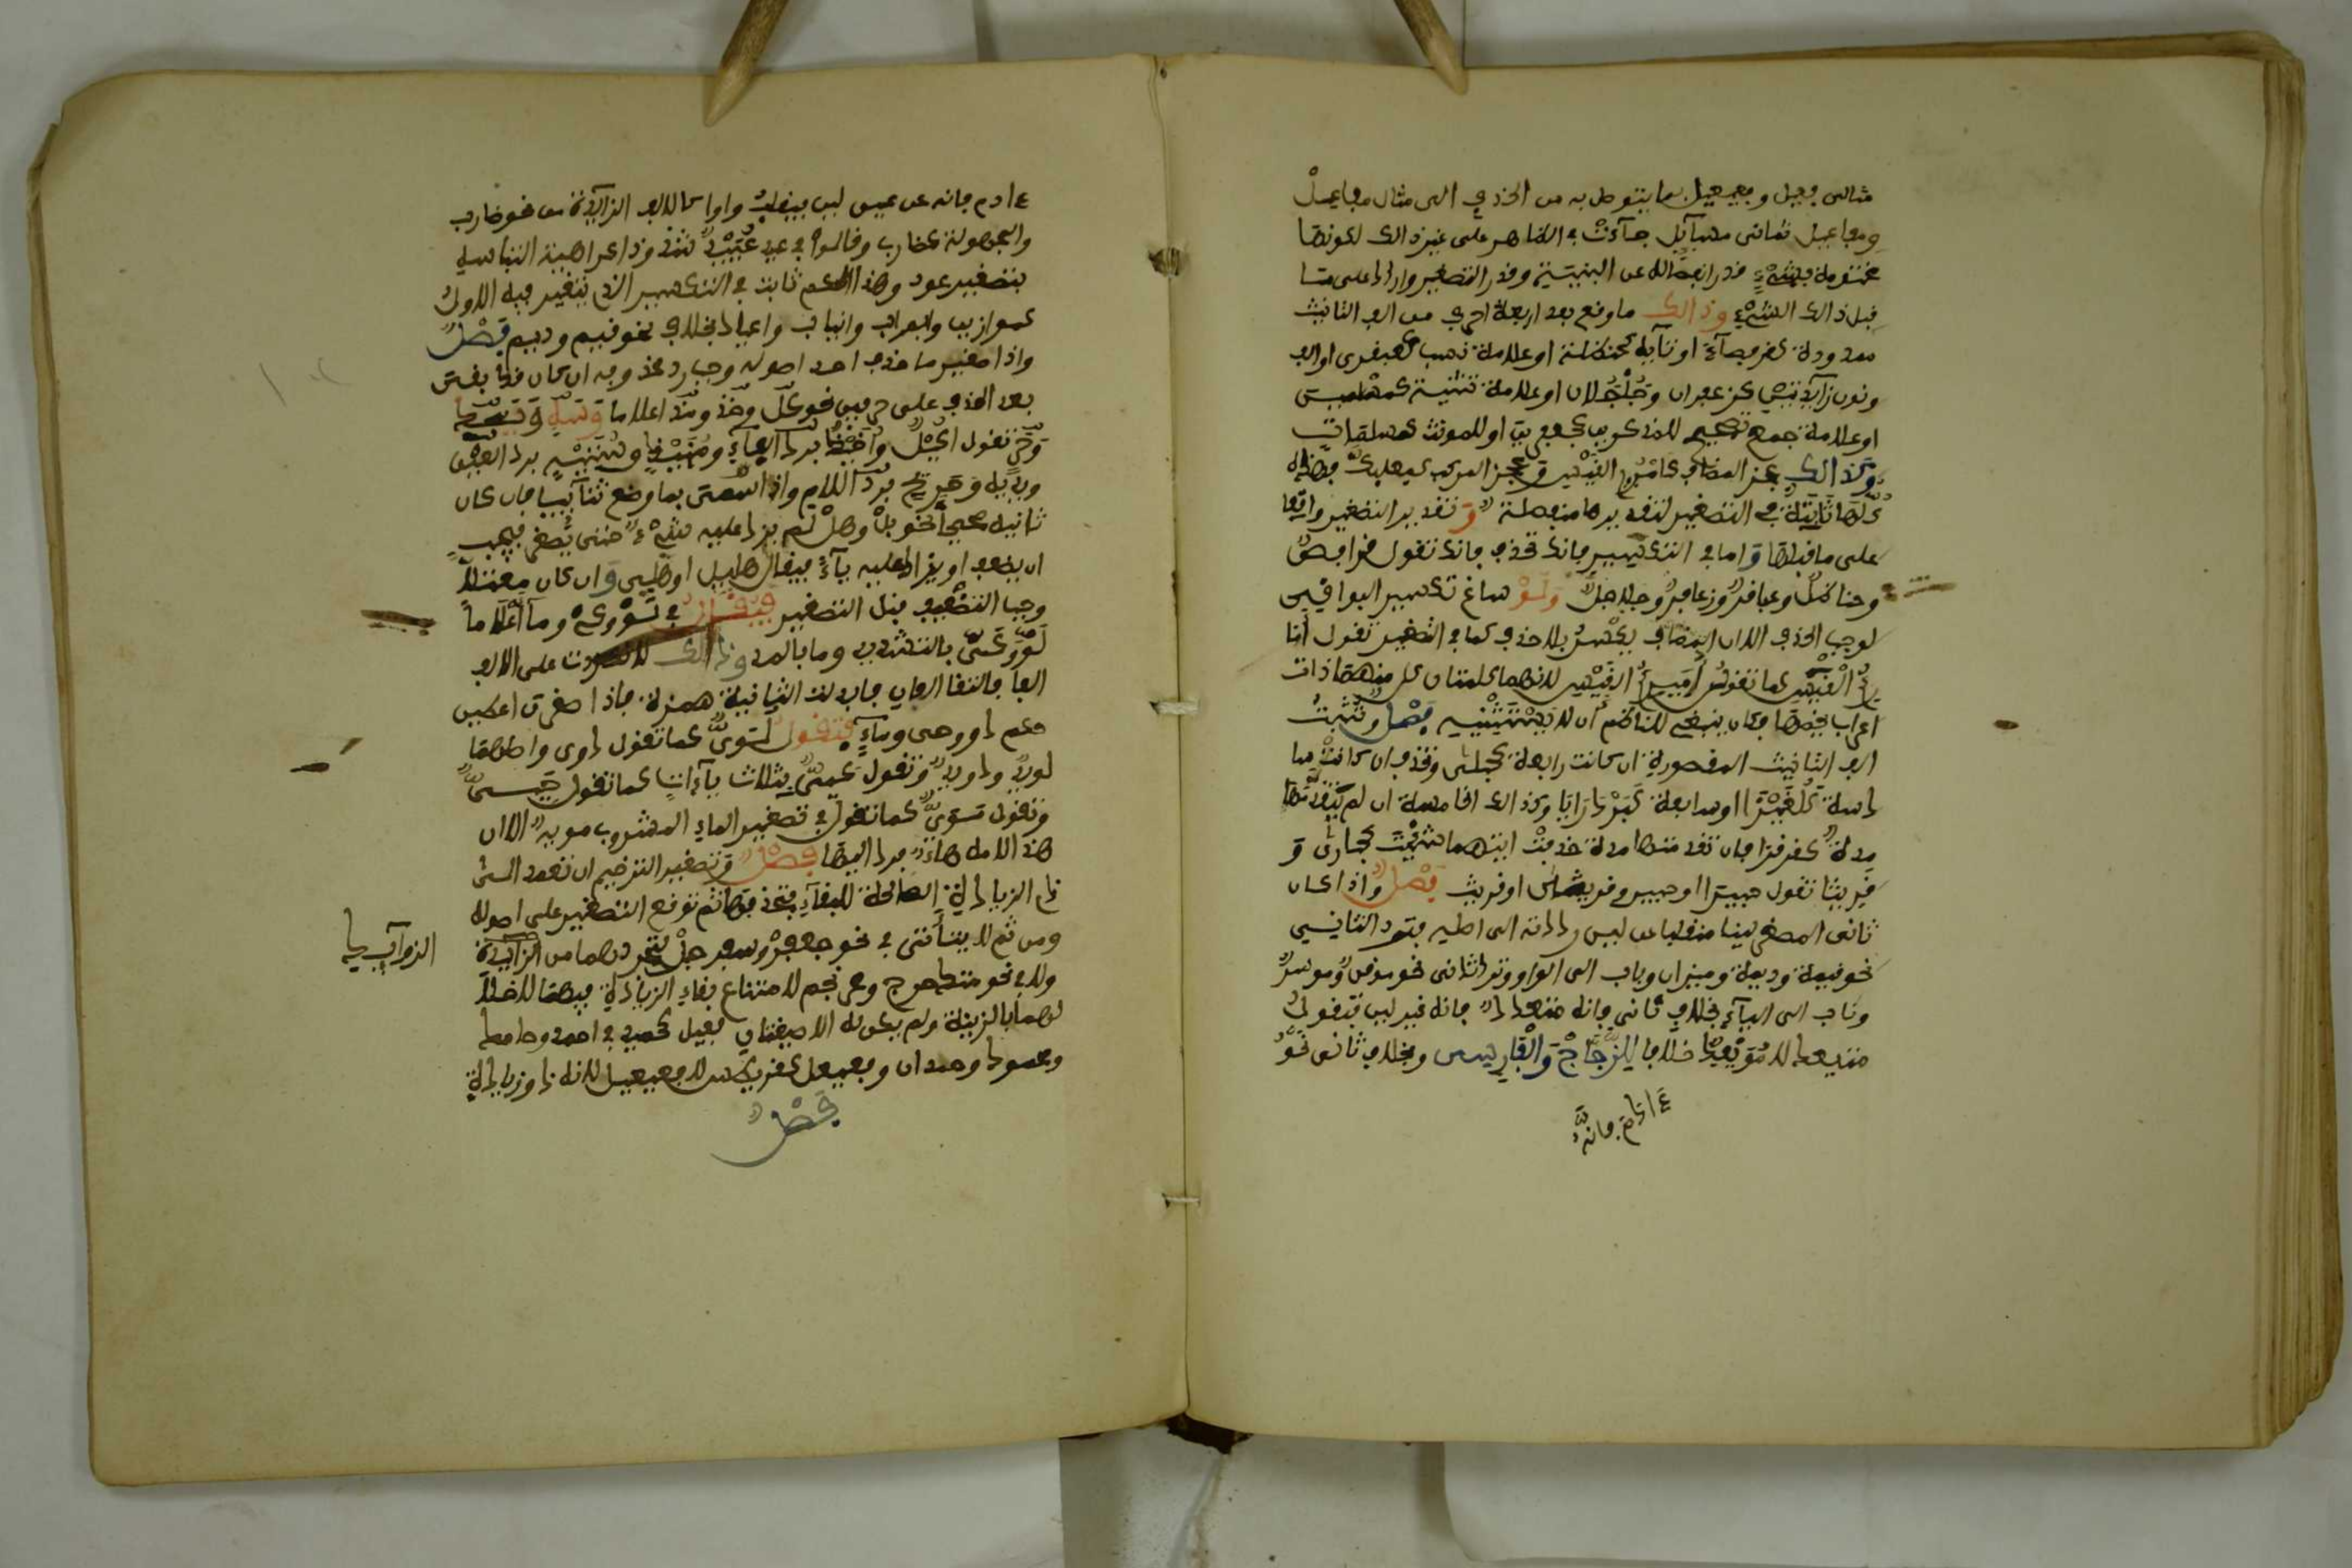 مثالى فعيل وفعيعيل بما يتوصل به من الحذف الى مثال مفاعل
ومفاعيل ثمانى مسآئل جآءت في الظاهر على غير ذالك لكونها
مختومة بشىء قدر انفصاله عن البنية وقدر التصغير واردا على ما
قبل ذالك الشىء وذالك ما وقع بعد اربعة احرف من الف التانيث
ممدودة كقرفصآء او تآيه كحنظلة او علامة نسب كعبقرى او الف
ونون زآيدتين كزعفران وجلجلان او علامة تثنية كمسلمين
او علامة جمع تصحيح للمذكر كجعفرين او للمونث كمسلمات
وكذالك عجز المضاف كامرئ القيس وعجز المركب كبعلبك فهذه
كلها ثابتة في التصغير لتقديرها منفصلة وتقدير التصغير واقعا
على ما قبلها واما في التكسير فانك تحذف فانك تقول قرافص
وحناظل وعباقر وزعافر وجلاجل ولو ساغ تكسير البواقى
لوجب الحذف الا ان المضاف يكسر بلا حذف كما في التصغير تقول
امرئ القيس كما تقول اميرئ القيس لانهما كلمتان كل منهما ذات
اعراب يخصها فكان ينبغى للناظم ان لا يستثنيه فصل وتثبت
الف التانيث المقصورة ان كانت رابعة كحبلى وتحذف ان كانت سا
دسة كلغيزا او سابعة كبردرايا وكذا الخامسة ان لم يتقدمها
مدة كقرقرا فان تقدمتها مدة حذفت ايتهما شئت كحبارى و
قريثا تقول حبيرا او حبير وقريثا او قريث فصل واذا كان
ثانى المصغر لينا منقلبا عن لين رددته الى اصله فترد الثانى
نحو قيمة وديمة وميزان وباب الى الواو وترد ثانى نحو موقن وموسر
وناب الى اليآء بخلاف ثانى فانه متعد فانه غير لين فتقول
متيعد لا مويعد خلافا للزجاج والفارسى وبخلاف ثانى نحو
ءادم فانه
ءادم فانه عن غير لين فيقلب واوا كالالف الزآيدة من نحو ضارب
والمجهولة كصاب وقالوا في عيد عييد شذوذا كراهية التباسه
بتصغير عود وهذا الحكم ثابت في التكسير الذى يتغير فيه الاول
كموازين وابواب وانياب واعياد بخلاف نحو قيم وديم فصل
واذا صغر ما حذف احد اصوله وجب رد محذوفه ان كان قد بقى
بعد الحذف على حرفين نحو كل وخذ ومذ اعلاما
وحر تقول اكيل واخيذ برد الفاء ومنيذ وستيه برد العين
ويديه وحريح برد اللام واذا سمى بما وضع ثنآئيا فان كان
ثانيه صحيحا نحو بل وهل لم يزد عليه شىء حتى يصغر فيجب
ان يضعف او يزاد عليه يآء فيقال هليل او هلى وان كان معتلا
وجب التضعيف قبل التصغير فيقال في لو وكى وما اعلاما
لو وكى بالتشديد وما بالمد وذالك لانك زدت على الالف
الفا فالتقا الفان فابدلت الثانية همزة فاذا صغرت اعطين
حكم دو وحى ومآء فتقول لوى كما تقول دوى واصلهما
لويو ودويو وتقول كيى بثلاث يآءات كما تقول حيى
وتقول موى كما تقول في تصغير الماء المشروب مويه الا ان
هذا لامه هاء فرد اليها فصل وتصغير الترخيم ان تعمد الى
ذى الزيادة الصالحة للبقآء فتحذفها ثم توقع التصغير على اصوله
ومن ثم لا يتأتى في نحو جعفر وسفرجل لتجردهما من الزآيدة
ولا في نحو متدحرج ومحرنجم لامتناع بقاء الزيادة فيهما لاخلا
لهما بالزنة ولم يكن له الا صيغتان فعيل كحميد في احمد وحامد
ومحمود وحمدان وفعيعل كقريطس لا فعيعيل لانه ذو زيادة
فصل
الزوآئد